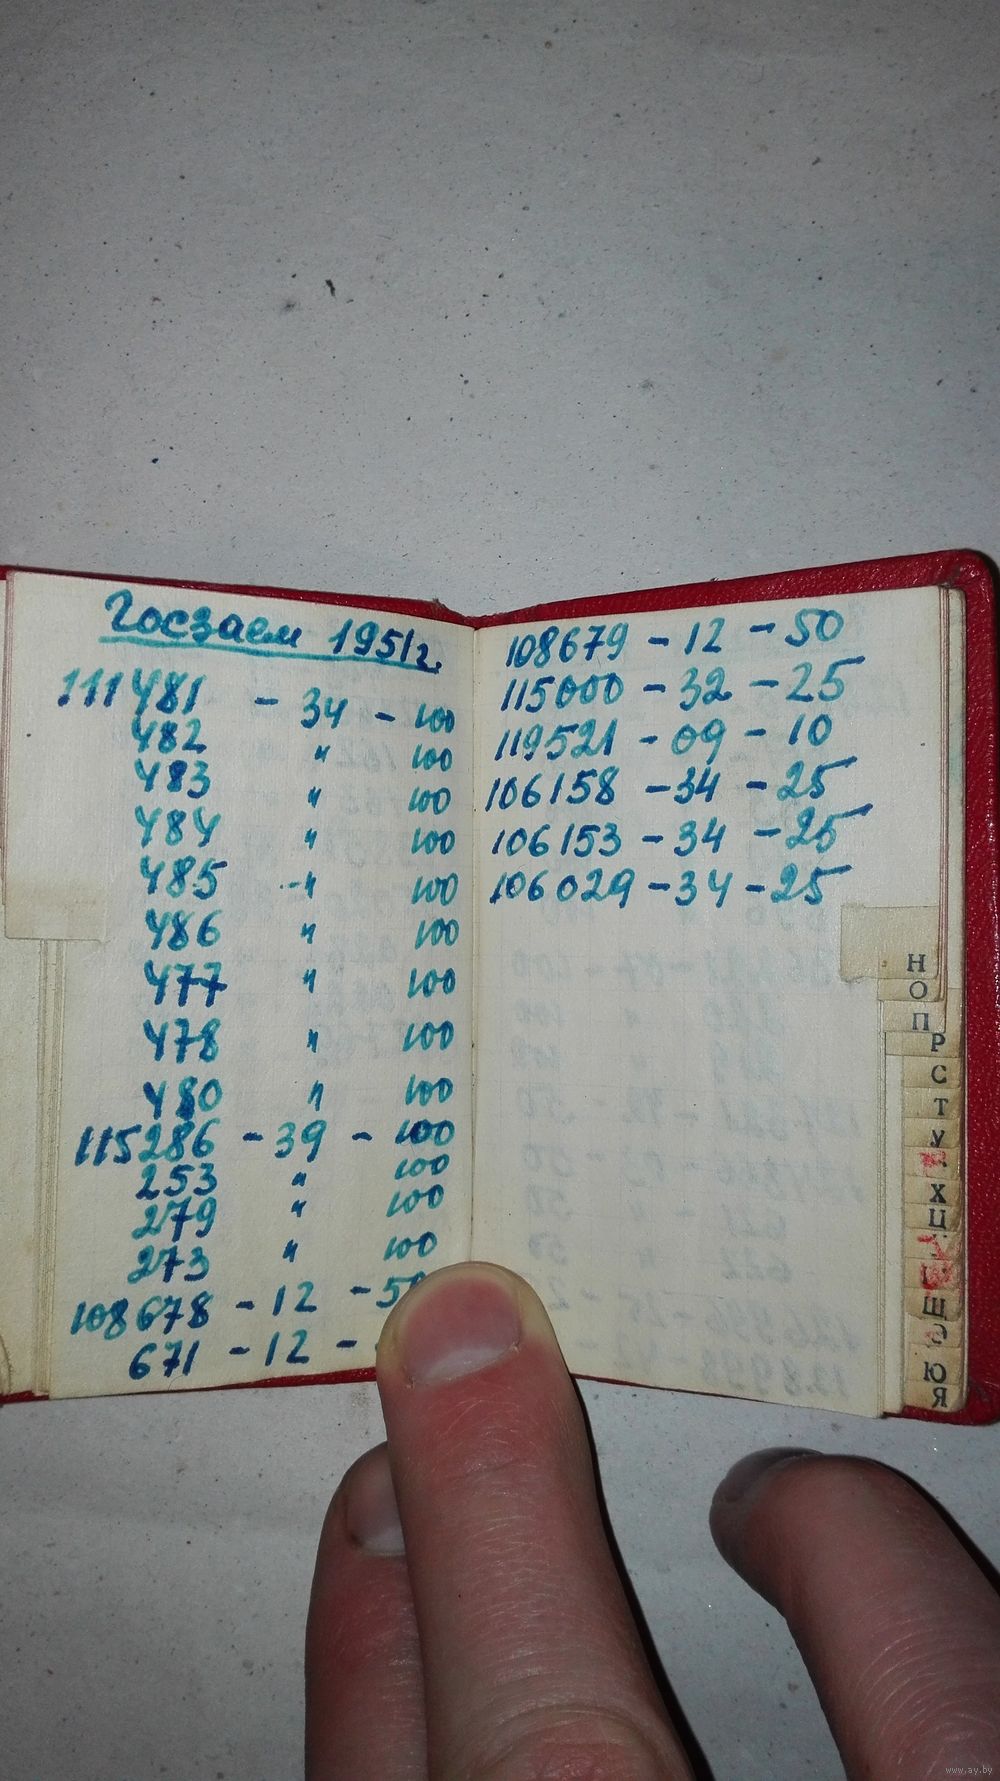 Госзаем 1951г.
111481 - 34 - 100
482 " 100
483 " 100
484 " 100
485 - " 100
486 " 100
477 " 100
478 " 100
480 " 100
115286 - 39 - 100
253 " 100
279 " 100
273 " 100
108678 - 12 - 50
671 - 12 -
108679 - 12 - 50
115000 - 32 - 25
119521 - 09 - 10
106158 - 34 - 25
106153 - 34 - 25
106029 - 34 - 25
Н
О
П
Р
С
Т
У
Х
Ц
Ш
Э
Ю
Я
www.ay.by